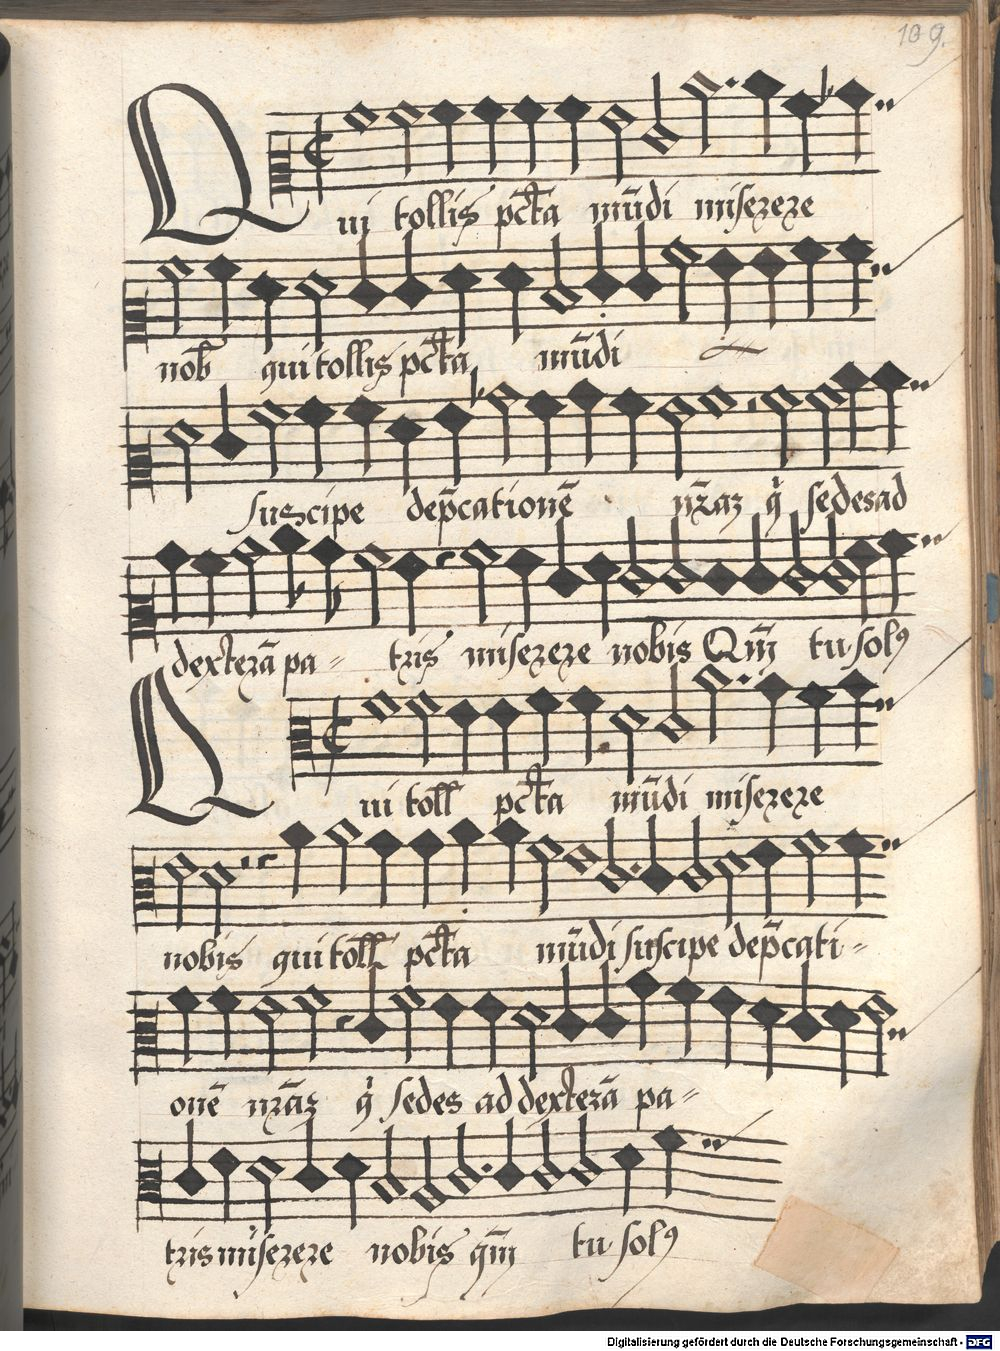 109.
Qui tollis pc̄ta mūdi miserere
nob̄ qui tollis pc̄ta mūdi
suscipe dep̄cationē nr̄az q̇ sedes ad
dexterā pa- tris miserere nobis Qm̄ tu solꝯ
Qui toll pc̄ta mūdi miserere
nobis qui toll pc̄ta mūdi suscipe dep̄cati-
onē nr̄āz q̇ sedes ad dexterā pa-
tris miserere nobis qm̄ tu solꝯ
Digitalisierung gefördert durch die Deutsche Forschungsgemeinschaft - DFG